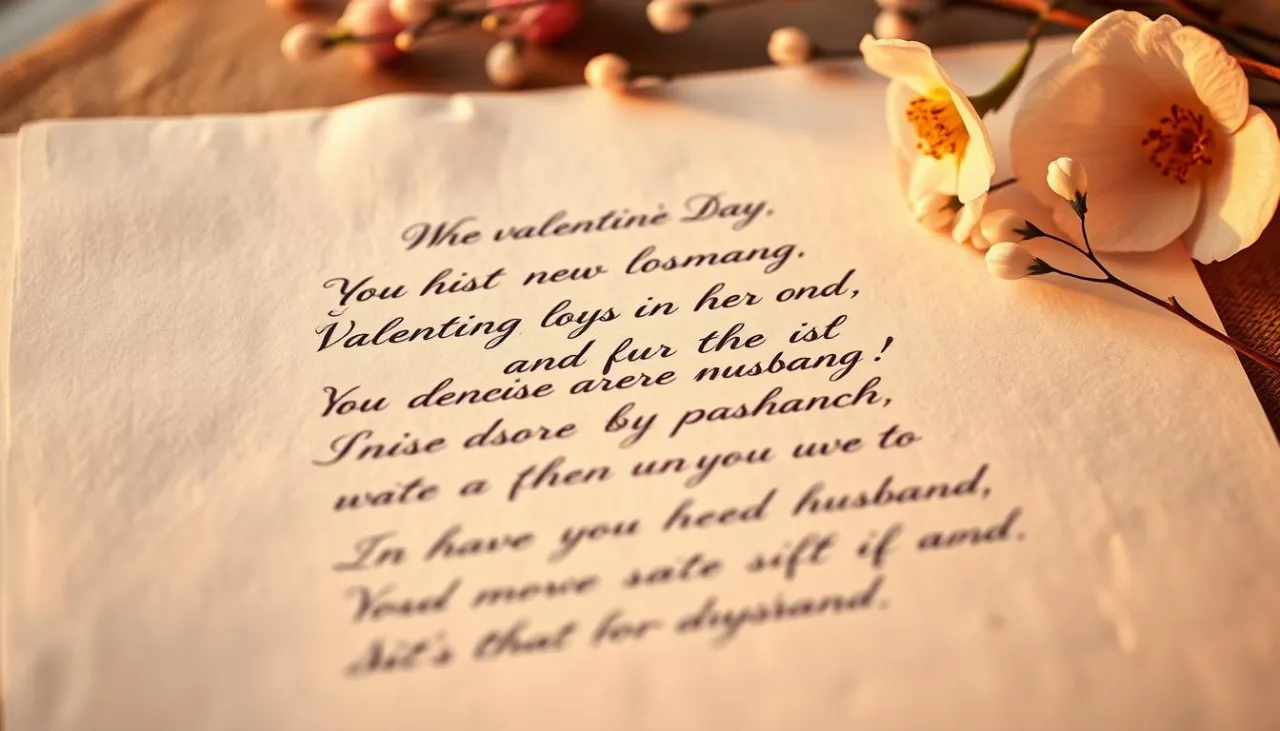 Whe valentinė Day.
You hist new losmang.
Valenting loys in her ond,
and fur the ist
You dencise arere nusbang!
Inise dsore by pashanch,
wate a fhen unyou uve to
In have you heed husband,
Youd mowe sate sift if amd.
that for